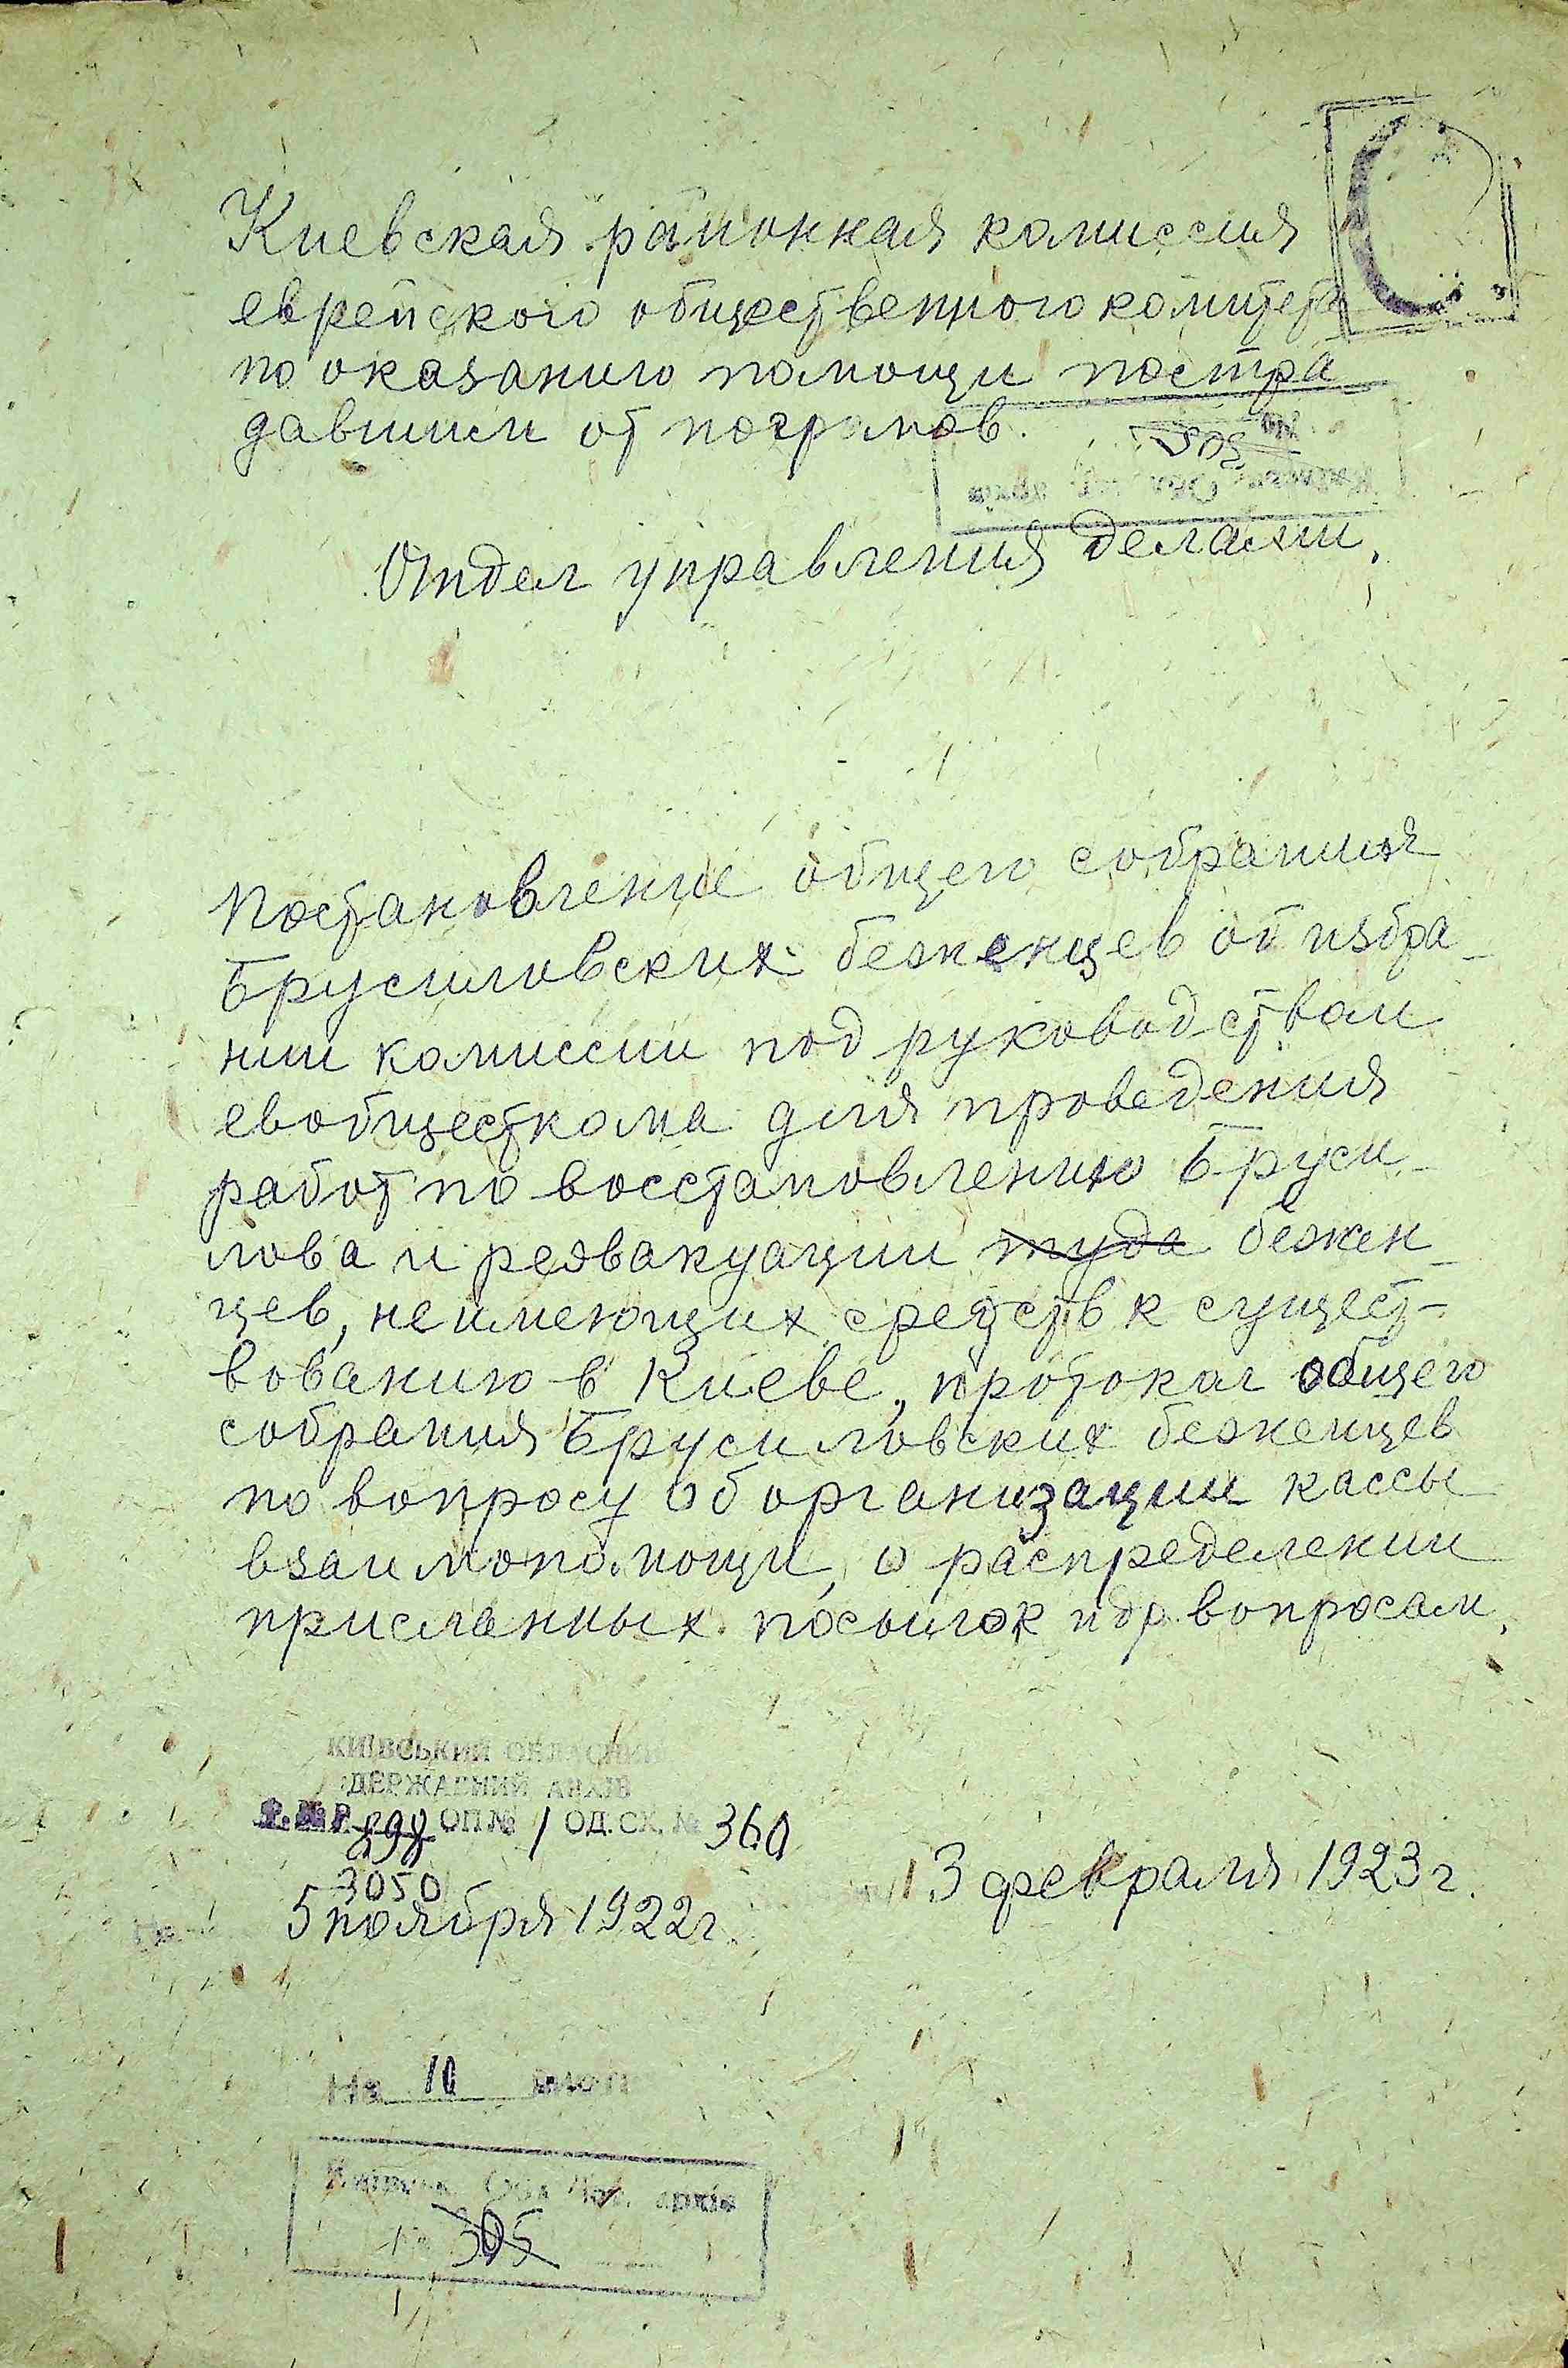 Киевская районная комиссия
еврейского общественного комитета
по оказанию помощи постра
давшим от погромов.
Отдел управления делами.
Постановление общего собрания
Брусиловских беженцев об избра-
нии комиссии под руководством
евобщесткома для проведения
работ по восстановлению Бруси-
лова и реэвакуации туда бежен-
цев, не имеющих средств к сущест-
вованию в Киеве, протокол общего
собрания Брусиловских беженцев
по вопросу об организации кассы
взаимопомощи, о распределении
присланных посылок и др. вопросам.
КИЇВСЬКИЙ ОБЛАСНИЙ
ДЕРЖАВНИЙ АРХІВ
Ф. № Р. ОП № 1 ОД. СХ. № 360
3050
5 ноября 1922 г.
13 февраля 1923 г.
На 10
Обл архів
№ 305